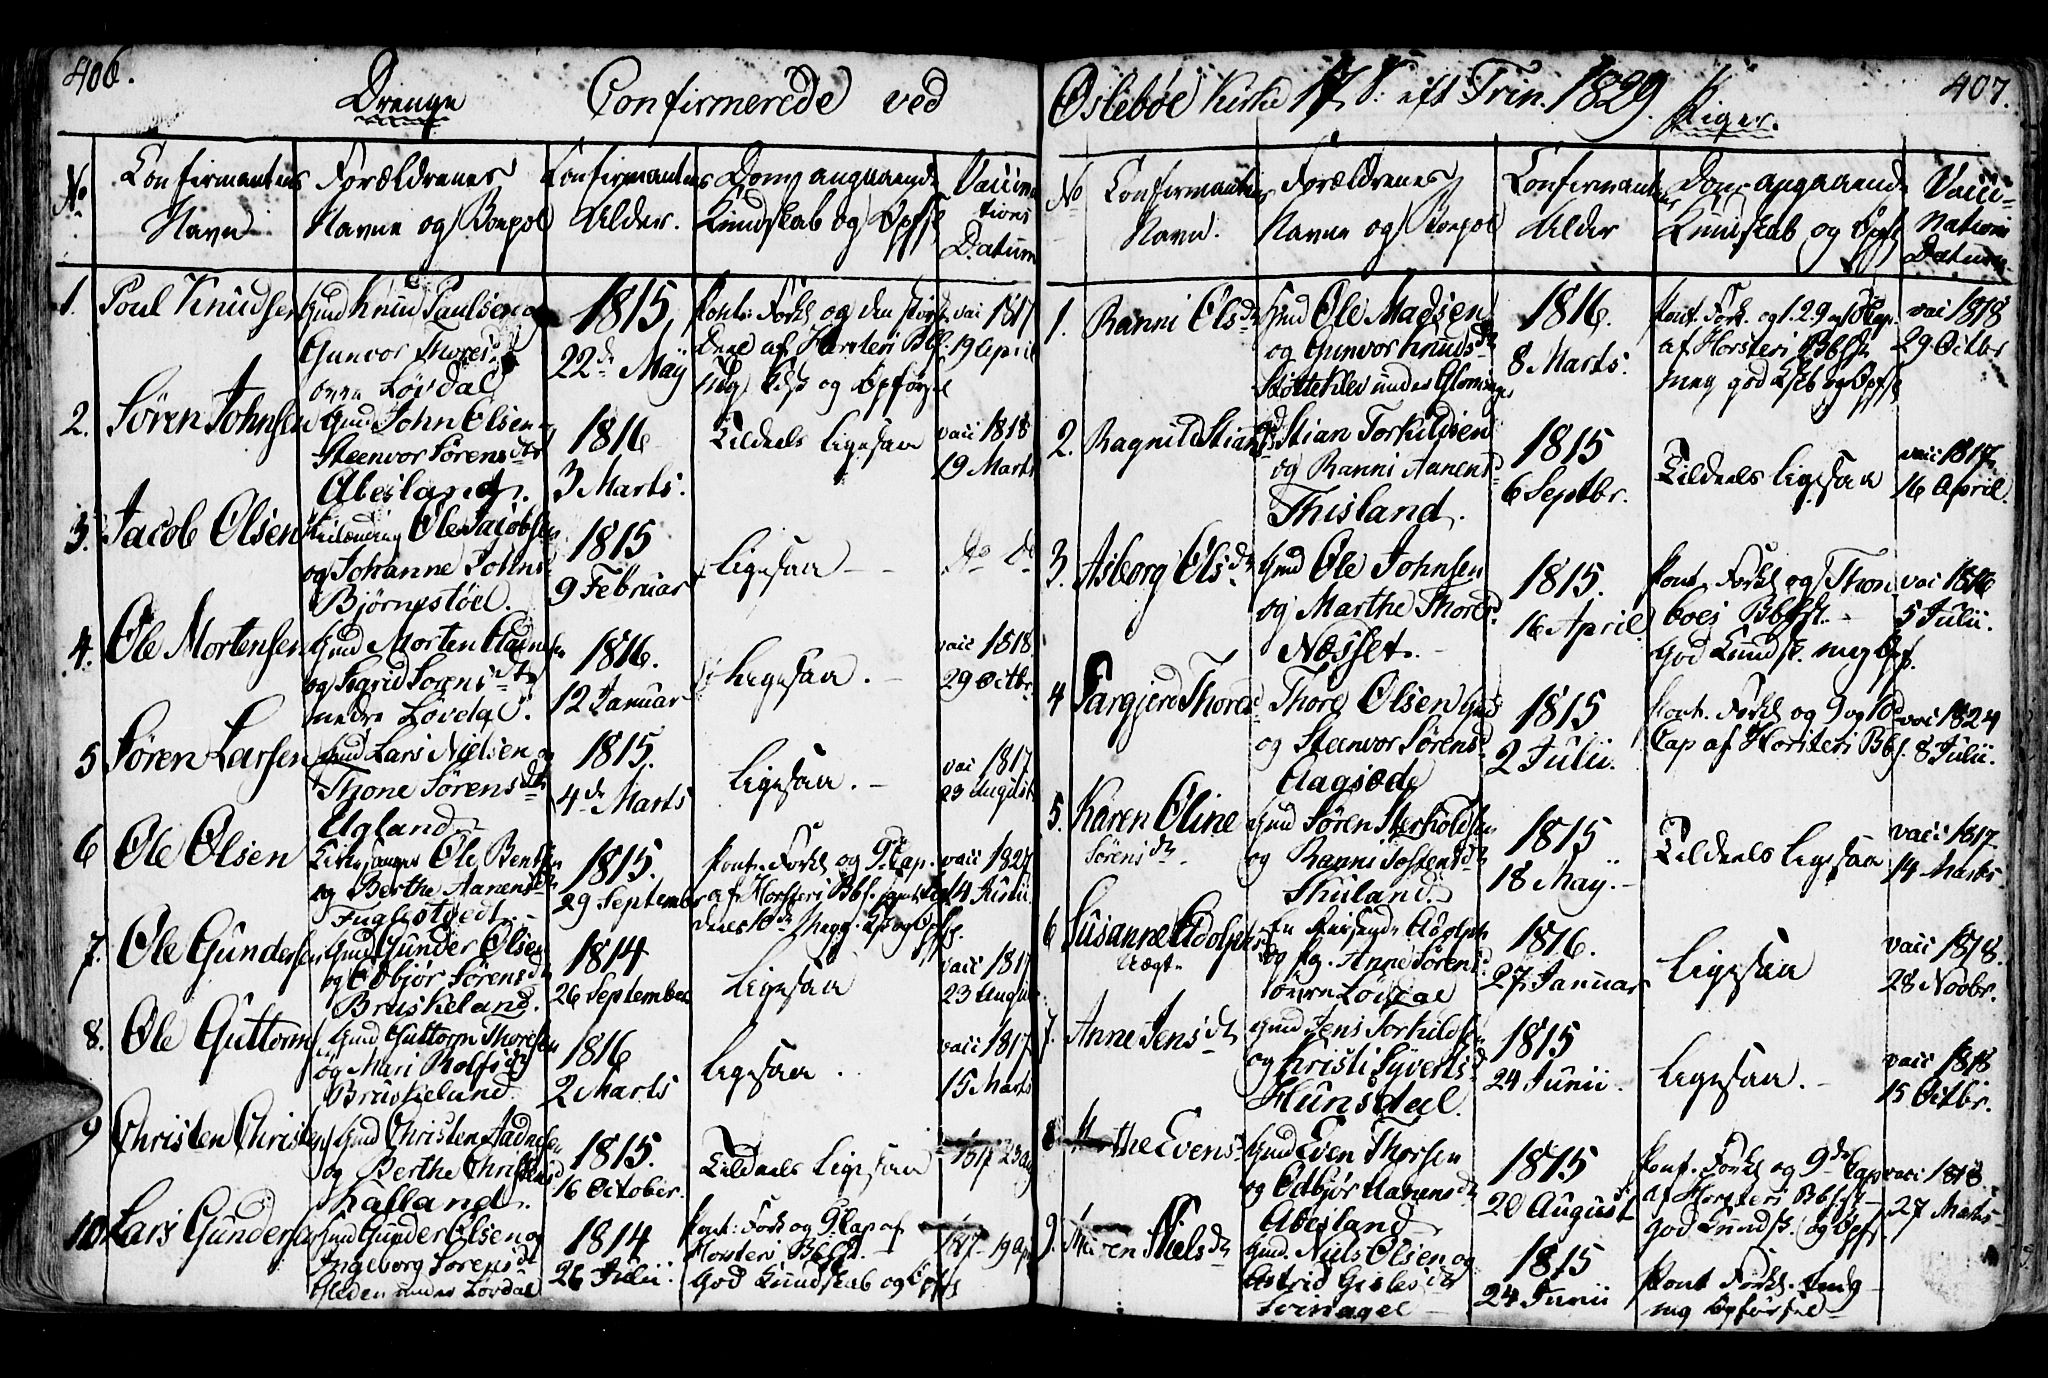 406.
Drenge
Confirmerede ved
No
Confirmantens
Navn
Forældrenes
Navne og Boepæl
Confirmantens
Alder.
Dom angaaende
Kundskab og Opfs
Vaccina
tions
Datum
1. Poul Knudsen
Gmd Knud Paulsen og
Gunvor Thores
øvre Løvdal
1815,
22de May
Pont: Forkl og den
af Horsteri Bbl.
og Opførsel
vac 1817
19 April
2. Søren Johnsen
Gmd John Olsen og
Steenvor Sørensdtr
Abesland.
1816
3 Marts.
Tildeels ligesaa
vacc 1818
19 Marts
3. Jacob Olsen
Ole Jacobsen
og Johanne Johns
Bjørnestøel.
1815
9 Februar
ligesaa
Do Do
4. Ole Mortensen
Gmd Morten Aadnesen
og Sigrid Sørensdtr
nedre Løvdal.
1816.
12 Januar
Ligesaa.
vacc 1818
29 Octbr
5 Søren Larsen
Gmd Lars Nielsen og
Thone Sørensdtr
Ugland
1815.
4de Marts
ligesaa.
vac 1817
23 August
6 Ole Olsen
Kirkesanger Ole Bentsen
og Berthe Aanensdtr
Fuglestvedt.
1815.
29 September
Pont. Forkl og 9de Cap.
af Horsteri Bbl.
vacc 1824
14 Junii
7. Ole Gundersen
Gmd Gunder Olsen
og Odbjør Sørensdtr
Bruskeland.
1814
26 September
Ligesaa
vacc 1817
23 August
8. Ole Guttorm
Gmd Guttorm Thoresen
og Mari Rolfsdtr
Bruskeland
1816
2 Marts
Ligesaa.
vacc 1817
15 Marts
9 Christen Christen
Gmd Christen Aadnesen
og Berthe Christensd
Kalland.
1815.
16 October.
Tildeels ligesaa
1817 23 Aug
10 Lars Gunders
Gmd Gunder Olsen og
Ingeborg Sørensdtr
Sleden under Løvdal
1814
26 Julii.
Pont: Forkl og 9 Cap af
Horsteri Bbl.
God Kundskab og Opfs
1817 19 Apr
Øslebøe Kirke 17 S. eft Trin. 1829.
Piger.
407.
No
Confirmantens
Navn.
Forældrenes
Navne og Boepæl
Confirmantens
Alder
Dom angaaende
Kundskab og Opfs
Vacci-
nations
Datum
1. Ranni Olsdtr
Gmd Ole Madsen
og Gunvor Knudsdtr
Støtteklev under Glomsage
1816.
8 Marts.
Pont. Fork. og 1. 2. 9 og 10 Cap.
af Horsteri Bbl
meg god og Opfs
vac 1818
29 Octbr
2. Ragnild Stians
Gmd Stian Torkildsen
og Ranni Aanens
Thisland.
1815
6 Septbr.
Tildeels ligesaa
vacc 1817
16 April.
3. Asborg Olsdtr
Gmd Ole Johnsen
og Marthe Thoresd
Næsset.
1815.
16 April
Pont. Forkl og Thon
boes Bbl.
God Kundsk. meg Opf.
vac 1816
5 Julii.
4 Targjerd Thores
Thore Olsen
og Steenvor Sørensd
Aagsøde
1815
2 Julii.
Pont. Forkl og 9 og 10de
Cap af Horsteri Bbl.
vac 1824
8 Julii.
5. Karen Oline
Sørensdtr
Gmd Søren Sterkoldsen
og Ranni Tostensdtr
Skuland.
1815
18 May.
Tildeels ligesaa
vacc 1817
14 Marts
6 Susanne Adolphs
Uægt.
Adolph
og Pig. Anne Sørensd
øvre Løvdal
1816.
27 Januar
Ligesaa
vacc 1818.
28 Novbr.
7. Anne Jensdtr
Gmd Jens Torkildsen
og Christi Syvertsd
Hunsdal.
1815
24 Junii.
Ligesaa.
vacc 1818
15 Octbr.
8 the Evens
Gmd Even Thorsen
og Odbjør Aanensdtr
Abesland
1815
20 August
Pont. Forkl og 9de Cap
af Horsteri Bbl
god Kundsk. og Opf.
vacc 1818.
27 Marts
9. en Nielsdtr
Gmd. Niels Olsen og
Astrid Gislesdtr
1815
24 Junii
Pont Forkl.
meg Opførsel